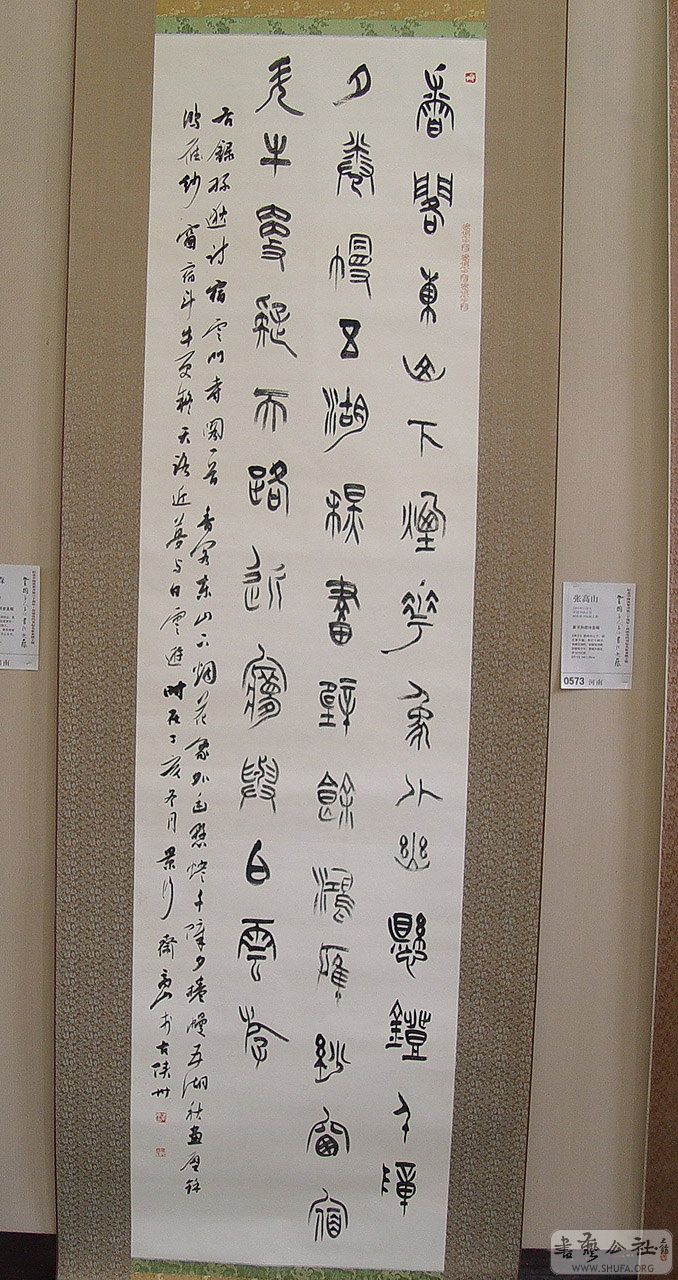 香閣東山下煙華象外幽懸鐙千障
夕卷幔五湖穐畫壁餘鴻雁紗窗宿
斗牛更疑天路近夢與白雲游
右錄孫逖詩宿雲門寺閣一首香閣東山下烟花象外幽懸燈千障夕捲幔五湖秋畫壁餘
鴻雁紗窗宿斗牛更疑天路近夢與白雲遊時在丁亥冬月景行齋高山於古陝州
张高山
0573 河南
書藝公社
WWW.SHUFA.ORG